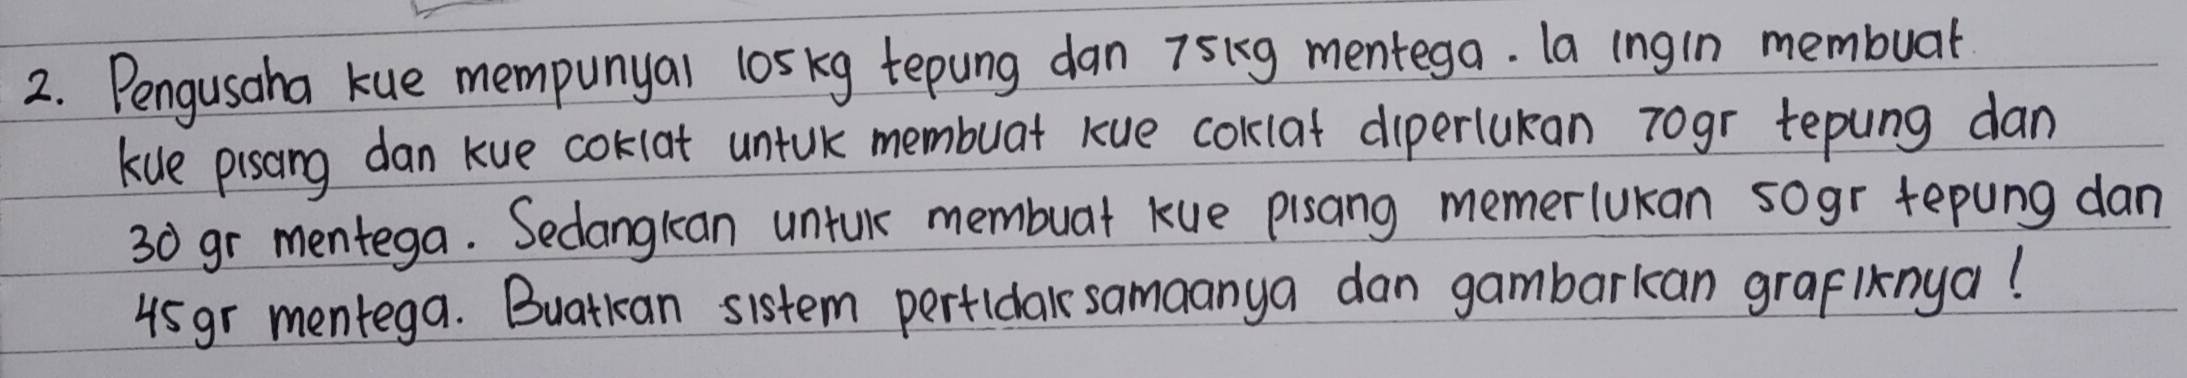 2. Pengusaha kue mempunyai 105kg tepung dan 75kg mentega. Ia ingin membuat
kue pisang dan kue coklat untuk membuat kue coklat diperlukan 70gr tepung dan
30 gr mentega. Sedangkan untuk membuat kue pisang memerlukan 50gr tepung dan
45gr mentega. Buatkan sistem pertidaksamaanya dan gambarkan grafiknya!